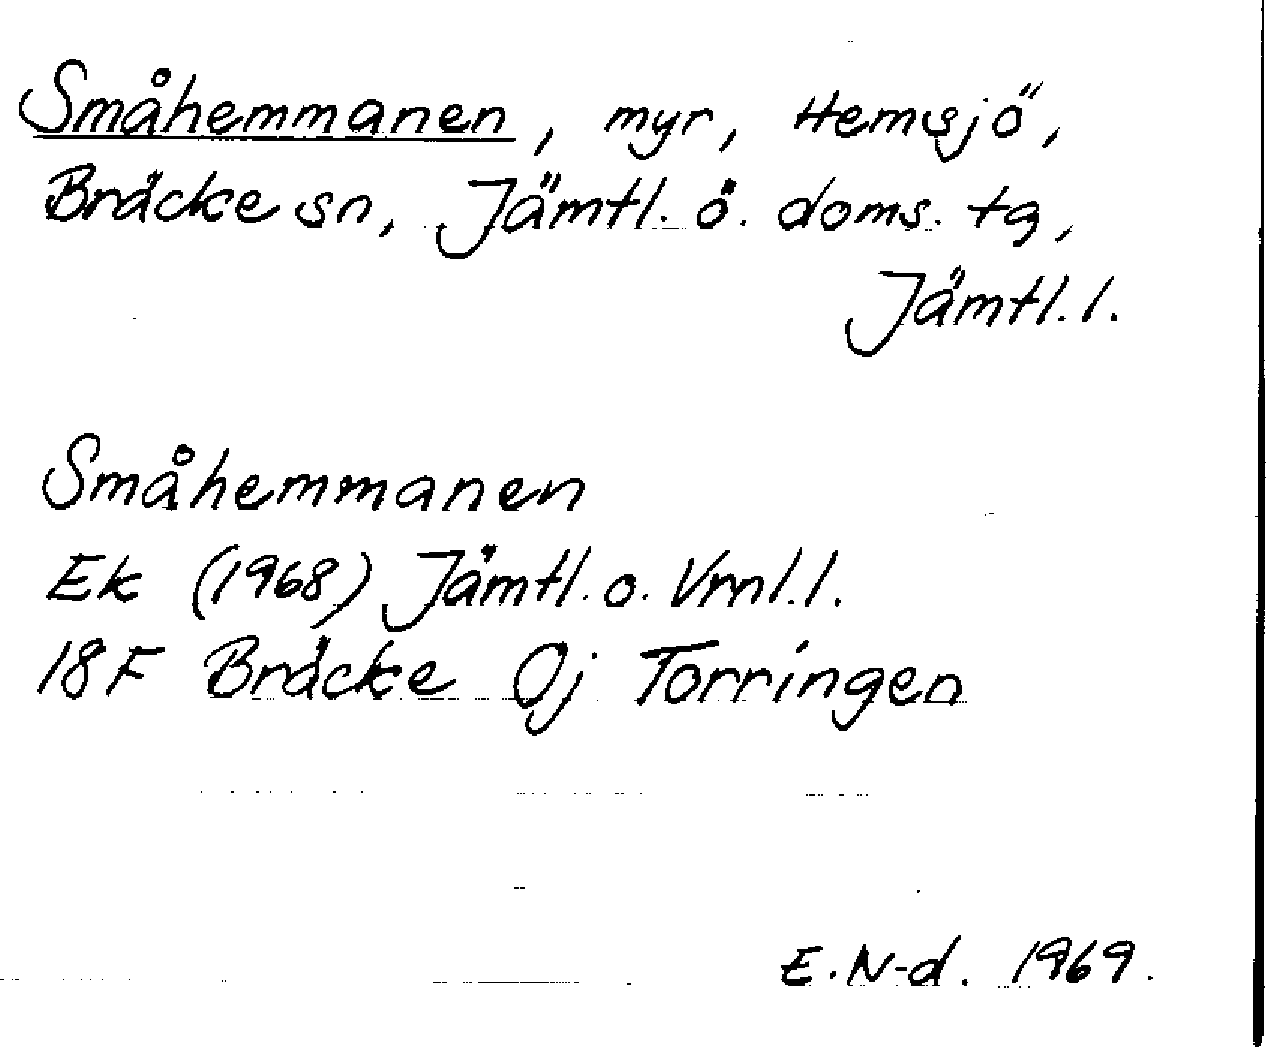 Småhemmanen, myr, Hemsjö,
Bräcke sn, Jämtl. ö. doms. tg,
Jämtl. l.
Småhemmanen
Ek (1968) Jämtl. o. Vrnl. l.
18F Bräcke Oj Torringen
E. N-d. 1969.